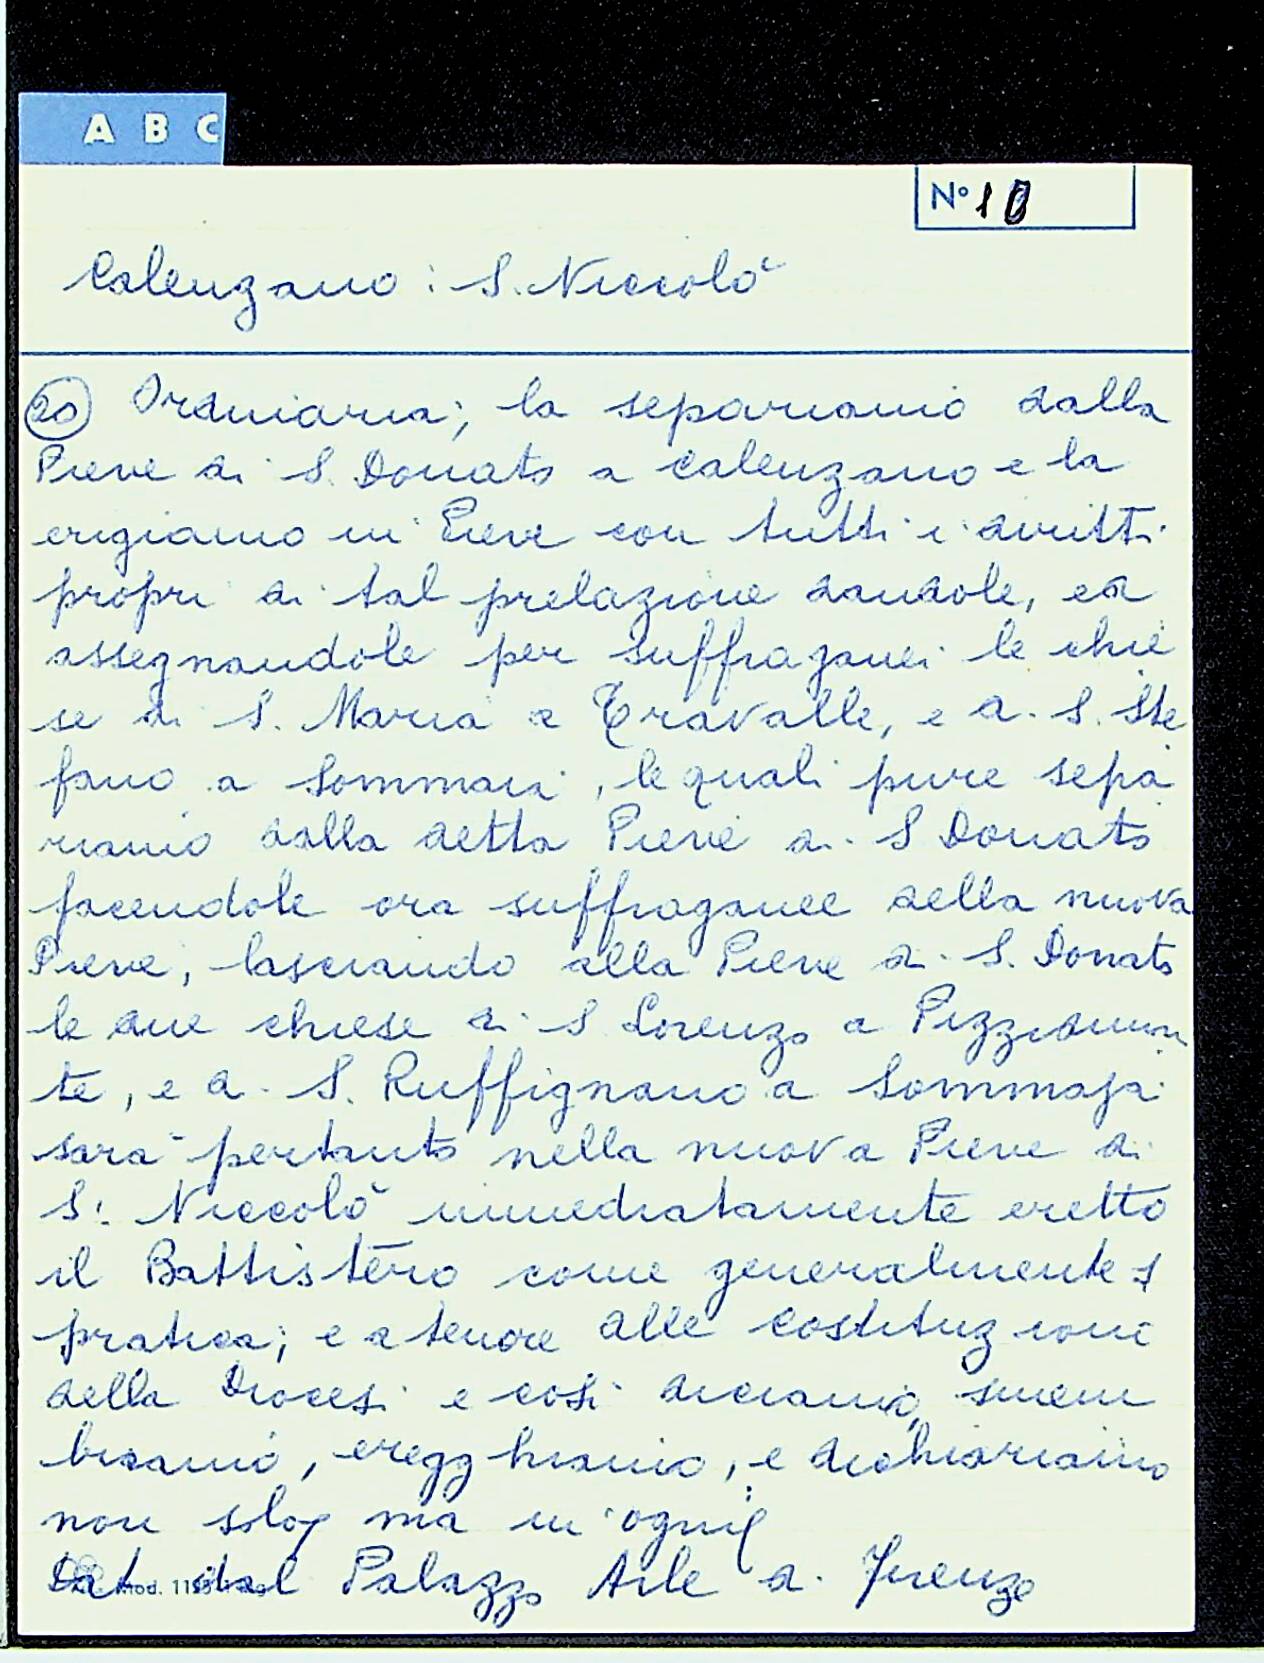 A B C
N° 10
Calenzano : S. Niccolò
20 Ordinaria; la separiamo dalla
Pieve di S. Donato a Calenzano e la
erigiamo in Pieve con tutti i diritti
propri di tal prelazione dandole, ed
assegnandole per suffraganei le chie
se di S. Maria a Travalle, e di S. Ste
fano a Sommaia, le quali pure sepa
riamo dalla detta Pieve di S Donato
facendole ora suffraganee della nuova
Pieve, lasciando alla Pieve di S. Donato
le due chiese di S Lorenzo a Pizzidimon
te, e di S. Ruffignano a Sommaja
sarà pertanto nella nuova Pieve di
S. Niccolò immediatamente eretto
il Battistero come generalmente si
pratica; e a tenore alle costituzioni
della Diocesi e così diciamo, smem
briamo, eregghiamo, e dichiariamo
non solo, ma in ogni
Dat. dal Palazzo Arle di Firenze
mod.